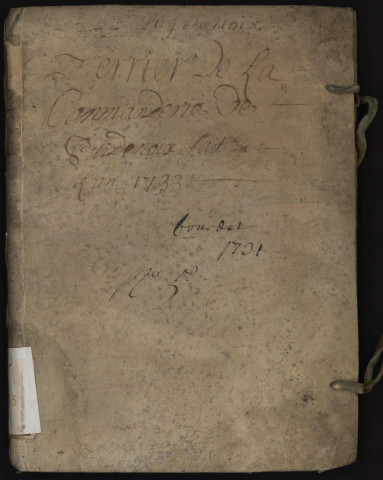 Terrier De La
Commanderie De
fait en
Lan 1733
bourdet
1731
No 5